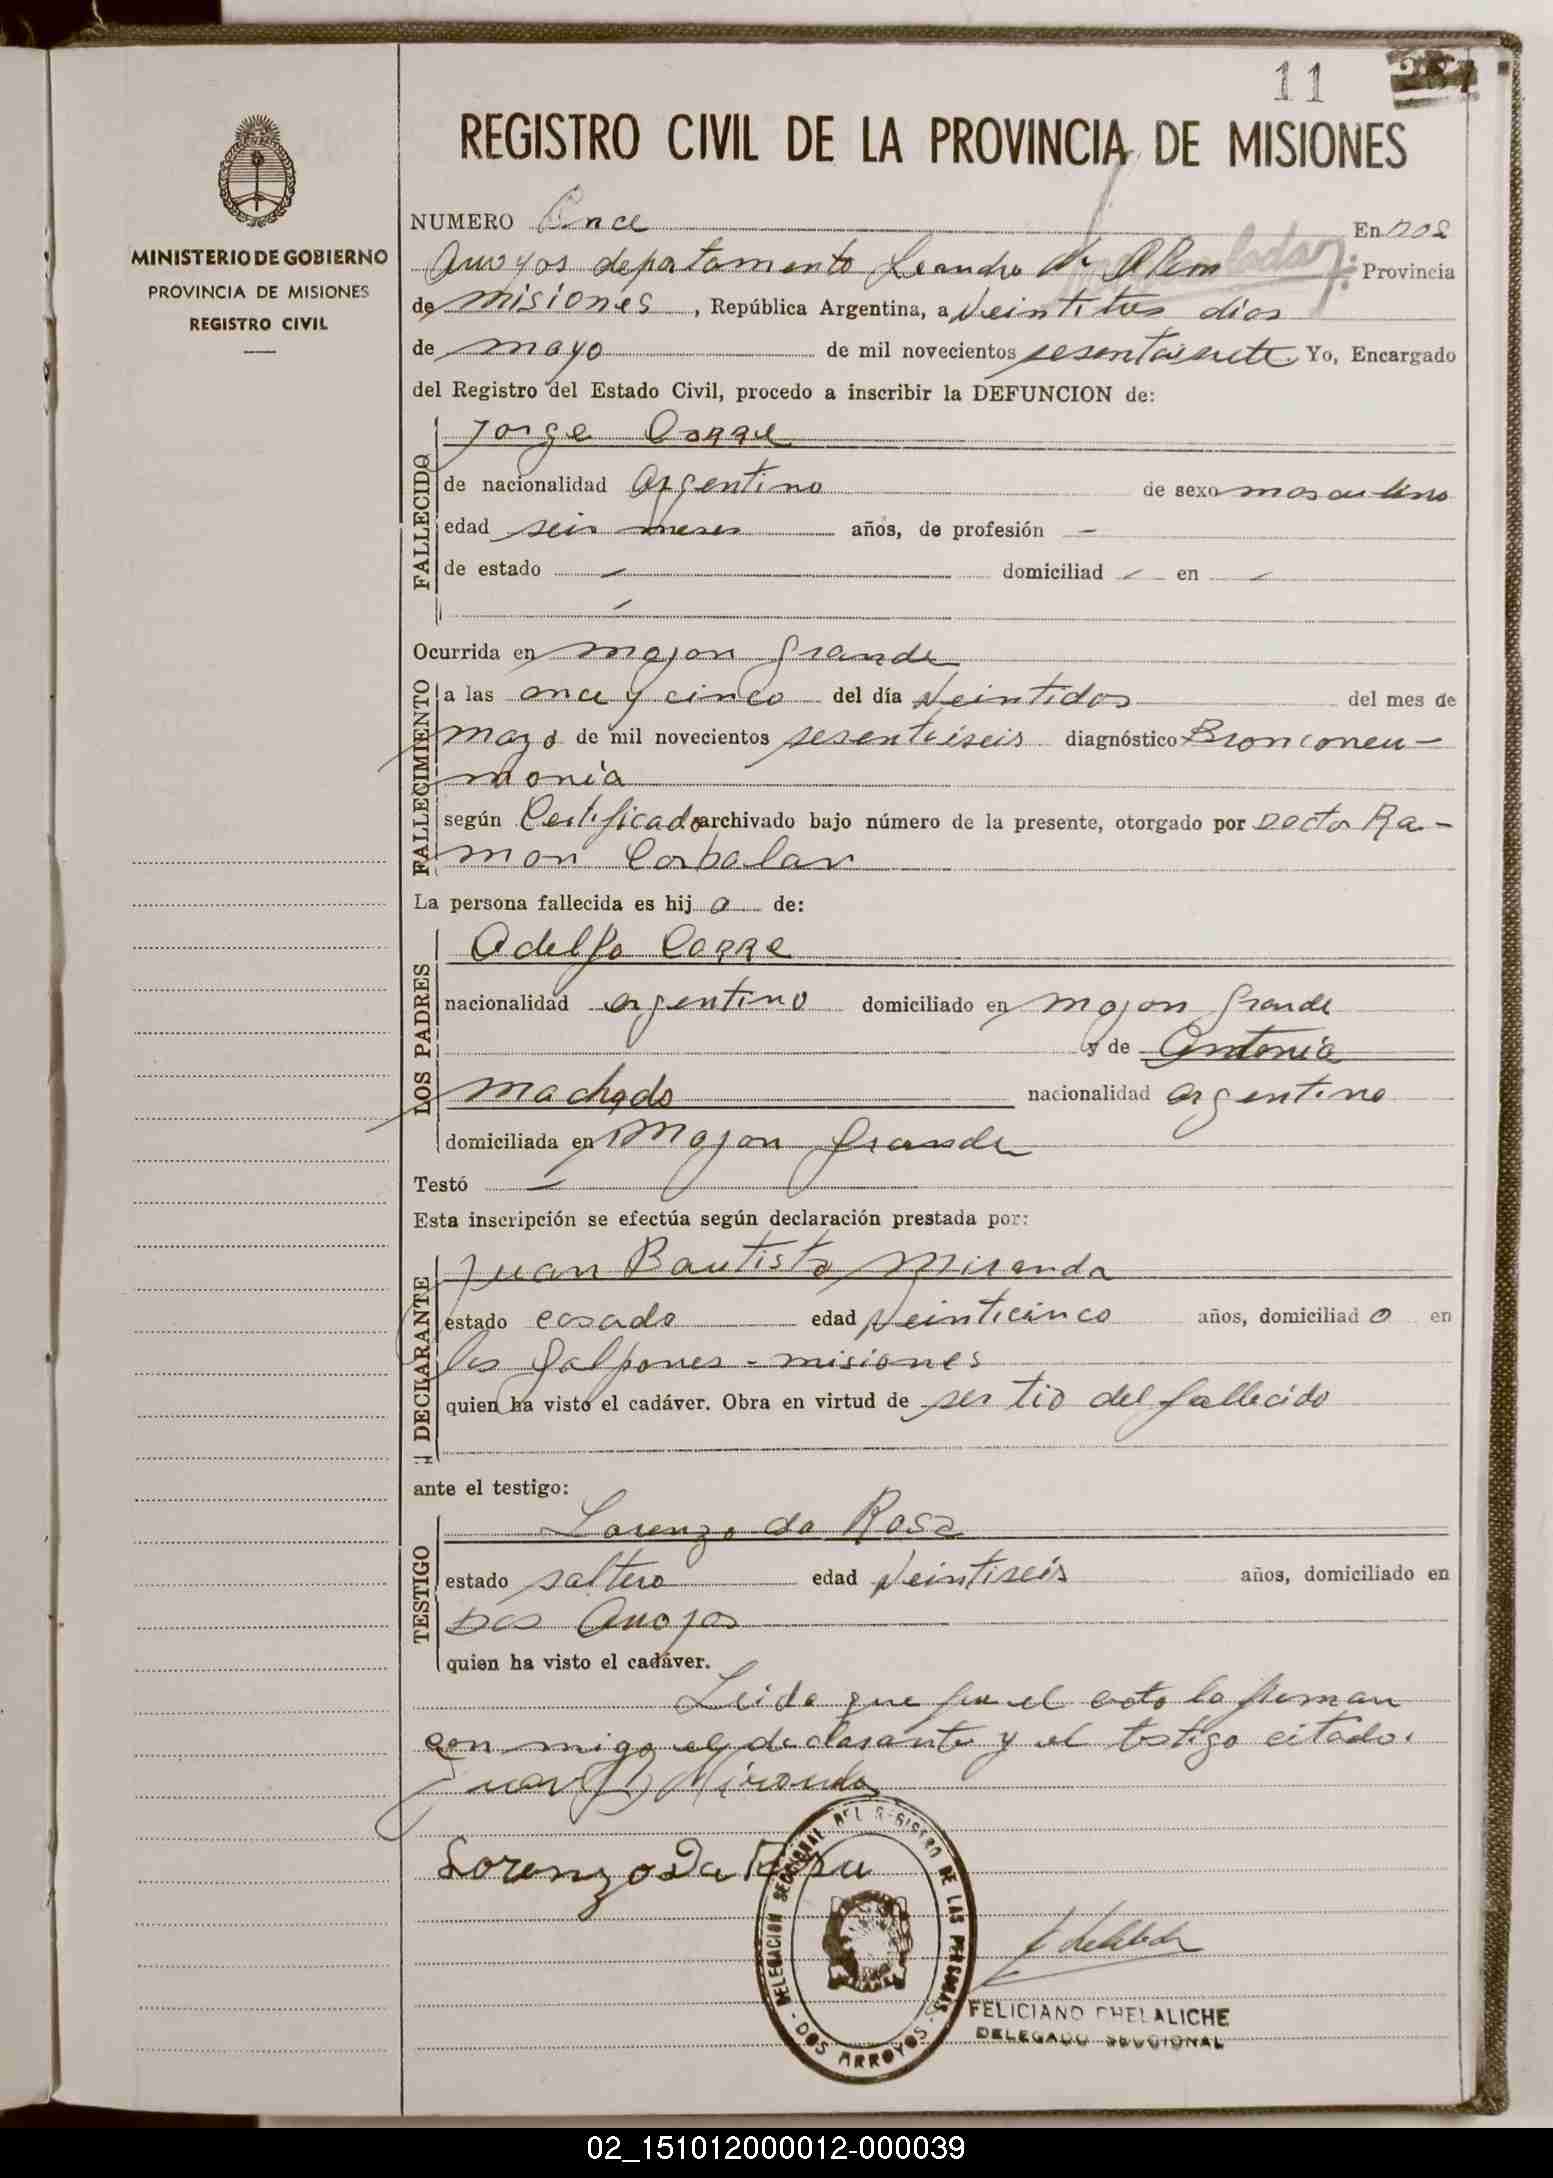 11
REGISTRO CIVIL DE LA PROVINCIA DE MISIONES
MINISTERIO DE GOBIERNO
PROVINCIA DE MISIONES
REGISTRO CIVIL
NUMERO Once En Dos
Arroyos departamento Leandro N. Alem Provincia
de misiones, República Argentina, a Veintitres dias
de mayo de mil novecientos sesentaisiete. Yo, Encargado
del Registro del Estado Civil, procedo a inscribir la DEFUNCION de:
FALLECIDO
Jorge Corre
de nacionalidad argentino de sexo masculino
edad seis meses años, de profesión -
de estado - domiciliad - en -
-
Ocurrida en mojon grande
FALLECIMIENTO
a las once y cinco del día Veintidos del mes de
mayo de mil novecientos sesentaiseis diagnóstico Bronconeu-
monia
según Certificado archivado bajo número de la presente, otorgado por Doctor Ra-
mon Corbalan
La persona fallecida es hij o de:
LOS PADRES
Adelfo Corre
nacionalidad argentino domiciliado en mojon grande
y de Antonia
machado nacionalidad argentina
domiciliada en Mojon Grande
Testó -
Esta inscripción se efectúa según declaración prestada por:
DECLARANTE
Juan Bautista Miranda
estado casado edad Veinticinco años, domiciliad o en
los Galpones - misiones
quien ha visto el cadáver. Obra en virtud de ser tio del fallecido
ante el testigo:
TESTIGO
Lorenzo da Rosa
estado soltero edad Veintiseis años, domiciliado en
Dos Arroyos
quien ha visto el cadáver.
Leida que fue el acta la firman
con migo el declarante y el testigo citado.
Juan B Miranda
Lorenzo Da Rosa
DELEGACION SECCIONAL DEL REGISTRO DE LAS PERSONAS
- DOS ARROYOS -
FELICIANO CHELALICHE
DELEGADO SECCIONAL
02_151012000012-000039